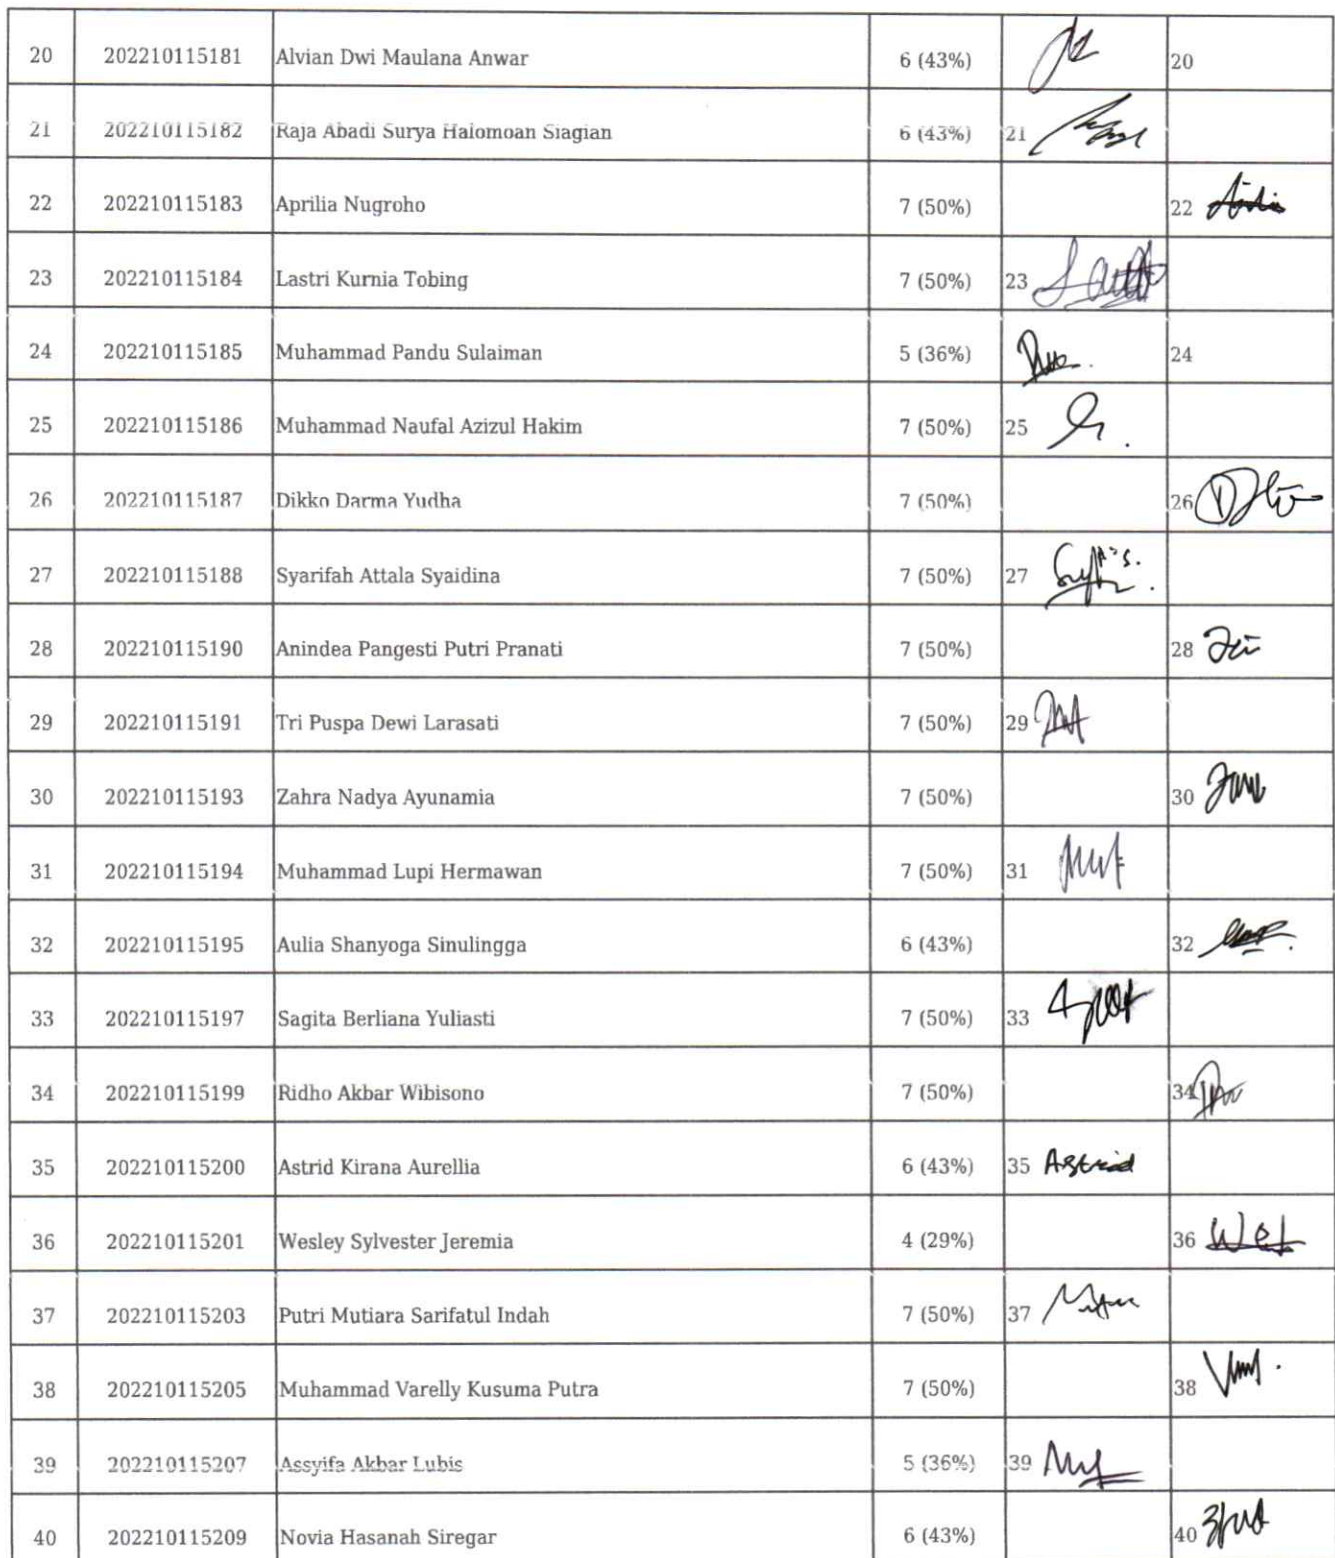 20 202210115181 Alvian Dwi Maulana Anwar 6 (43%) 20
21 202210115182 Raja Abadi Surya Halomoan Siagian 6 (43%) 21
22 202210115183 Aprilia Nugroho 7 (50%) 22
23 202210115184 Lastri Kurnia Tobing 7 (50%) 23
24 202210115185 Muhammad Pandu Sulaiman 5 (36%) 24
25 202210115186 Muhammad Naufal Azizul Hakim 7 (50%) 25
26 202210115187 Dikko Darma Yudha 7 (50%) 26
27 202210115188 Syarifah Attala Syaidina 7 (50%) 27
28 202210115190 Anindea Pangesti Putri Pranati 7 (50%) 28
29 202210115191 Tri Puspa Dewi Larasati 7 (50%) 29
30 202210115193 Zahra Nadya Ayunamia 7 (50%) 30
31 202210115194 Muhammad Lupi Hermawan 7 (50%) 31
32 202210115195 Aulia Shanyoga Sinulingga 6 (43%) 32
33 202210115197 Sagita Berliana Yuliasti 7 (50%) 33
34 202210115199 Ridho Akbar Wibisono 7 (50%) 34
35 202210115200 Astrid Kirana Aurellia 6 (43%) 35 Astrid
36 202210115201 Wesley Sylvester Jeremia 4 (29%) 36
37 202210115203 Putri Mutiara Sarifatul Indah 7 (50%) 37
38 202210115205 Muhammad Varelly Kusuma Putra 7 (50%) 38
39 202210115207 Assyifa Akbar Lubis 5 (36%) 39
40 202210115209 Novia Hasanah Siregar 6 (43%) 40